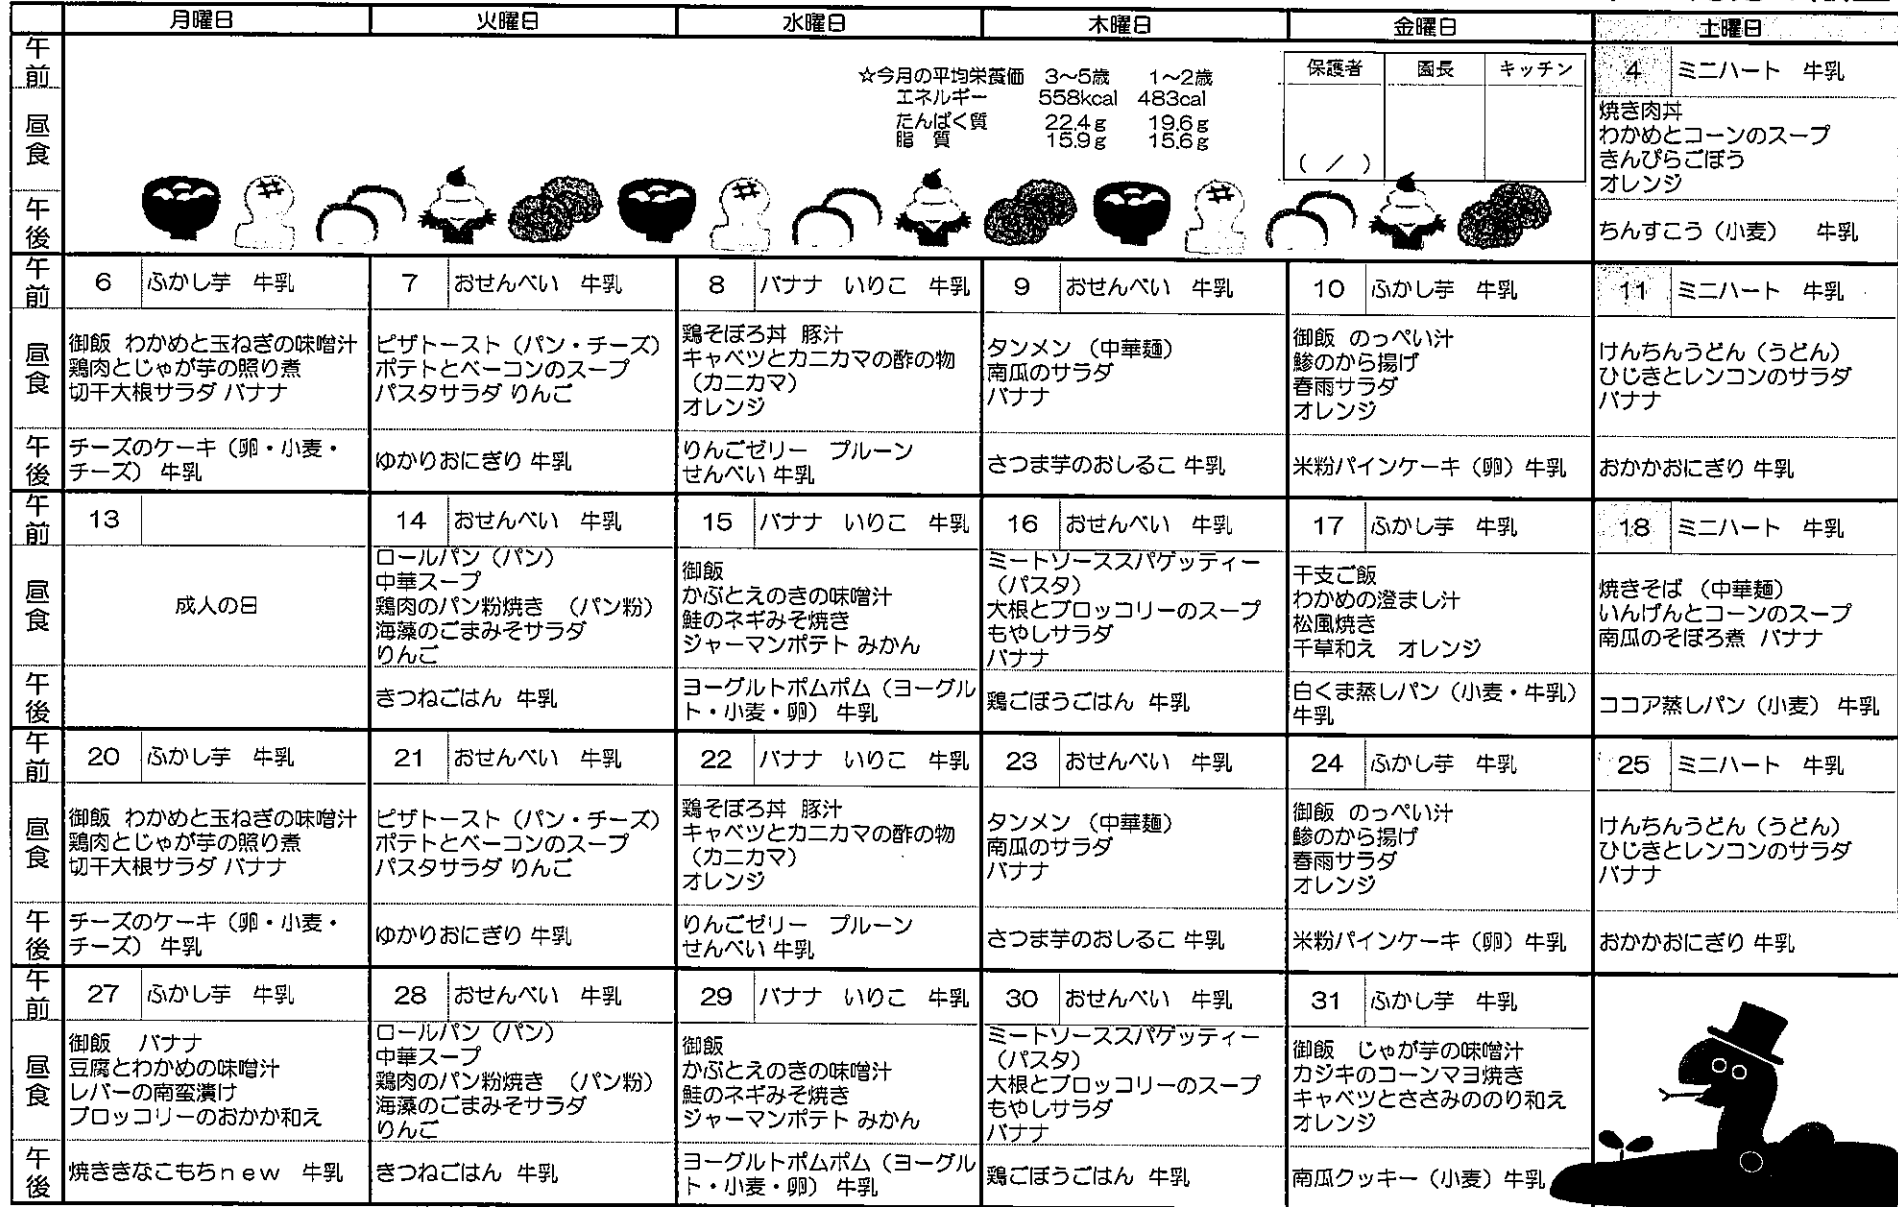 月曜日 火曜日 水曜日 木曜日 金曜日 土曜日
午前
昼食
午後
☆今月の平均栄養価 3~5歳 1~2歳
エネルギー 558kcal 483cal
たんぱく質 22.4g 19.6g
脂 質 15.9g 15.6g
保護者 園長 キッチン
( / )
4 ミニハート 牛乳
焼き肉丼
わかめとコーンのスープ
きんぴらごぼう
オレンジ
ちんすこう(小麦) 牛乳
午前
6 ふかし芋 牛乳
7 おせんべい 牛乳
8 バナナ いりこ 牛乳
9 おせんべい 牛乳
10 ふかし芋 牛乳
11 ミニハート 牛乳
昼食
御飯 わかめと玉ねぎの味噌汁
鶏肉とじゃが芋の照り煮
切干大根サラダ バナナ
ピザトースト(パン・チーズ)
ポテトとベーコンのスープ
パスタサラダ りんご
鶏そぼろ丼 豚汁
キャベツとカニカマの酢の物
(カニカマ)
オレンジ
タンメン (中華麺)
南瓜のサラダ
バナナ
御飯 のっぺい汁
鯵のから揚げ
春雨サラダ
オレンジ
けんちんうどん(うどん)
ひじきとレンコンのサラダ
バナナ
午後
チーズのケーキ(卵・小麦・
チーズ) 牛乳
ゆかりおにぎり 牛乳
りんごゼリー プルーン
せんべい 牛乳
さつま芋のおしるこ 牛乳
米粉パインケーキ(卵)牛乳
おかかおにぎり 牛乳
午前
13
14 おせんべい 牛乳
15 バナナ いりこ 牛乳
16 おせんべい 牛乳
17 ふかし芋 牛乳
18 ミニハート 牛乳
昼食
成人の日
ロールパン(パン)
中華スープ
鶏肉のパン粉焼き (パン粉)
海藻のごまみそサラダ
りんご
御飯
かぶとえのきの味噌汁
鮭のネギみそ焼き
ジャーマンポテト みかん
ミートソーススパゲッティー
(パスタ)
大根とブロッコリーのスープ
もやしサラダ
バナナ
干支ご飯
わかめの澄まし汁
松風焼き
千草和え オレンジ
焼きそば (中華麺)
いんげんとコーンのスープ
南瓜のそぼろ煮 バナナ
午後
きつねごはん 牛乳
ヨーグルトポムポム(ヨーグル
ト・小麦・卵) 牛乳
鶏ごぼうごはん 牛乳
白くま蒸しパン(小麦・牛乳)
牛乳
ココア蒸しパン(小麦) 牛乳
午前
20 ふかし芋 牛乳
21 おせんべい 牛乳
22 バナナ いりこ 牛乳
23 おせんべい 牛乳
24 ふかし芋 牛乳
25 ミニハート 牛乳
昼食
御飯 わかめと玉ねぎの味噌汁
鶏肉とじゃが芋の照り煮
切干大根サラダ バナナ
ピザトースト(パン・チーズ)
ポテトとベーコンのスープ
パスタサラダ りんご
鶏そぼろ丼 豚汁
キャベツとカニカマの酢の物
(カニカマ)
オレンジ
タンメン (中華麺)
南瓜のサラダ
バナナ
御飯 のっぺい汁
鯵のから揚げ
春雨サラダ
オレンジ
けんちんうどん(うどん)
ひじきとレンコンのサラダ
バナナ
午後
チーズのケーキ(卵・小麦・
チーズ) 牛乳
ゆかりおにぎり 牛乳
りんごゼリー プルーン
せんべい 牛乳
さつま芋のおしるこ 牛乳
米粉パインケーキ(卵)牛乳
おかかおにぎり 牛乳
午前
27 ふかし芋 牛乳
28 おせんべい 牛乳
29 バナナ いりこ 牛乳
30 おせんべい 牛乳
31 ふかし芋 牛乳
昼食
御飯 バナナ
豆腐とわかめの味噌汁
レバーの南蛮漬け
ブロッコリーのおかか和え
ロールパン(パン)
中華スープ
鶏肉のパン粉焼き (パン粉)
海藻のごまみそサラダ
りんご
御飯
かぶとえのきの味噌汁
鮭のネギみそ焼き
ジャーマンポテト みかん
ミートソーススパゲッティー
(パスタ)
大根とブロッコリーのスープ
もやしサラダ
バナナ
御飯 じゃが芋の味噌汁
カジキのコーンマヨ焼き
キャベツとささみののり和え
オレンジ
午後
焼ききなこもちnew 牛乳
きつねごはん 牛乳
ヨーグルトポムポム(ヨーグル
ト・小麦・卵) 牛乳
鶏ごぼうごはん 牛乳
南瓜クッキー(小麦)牛乳